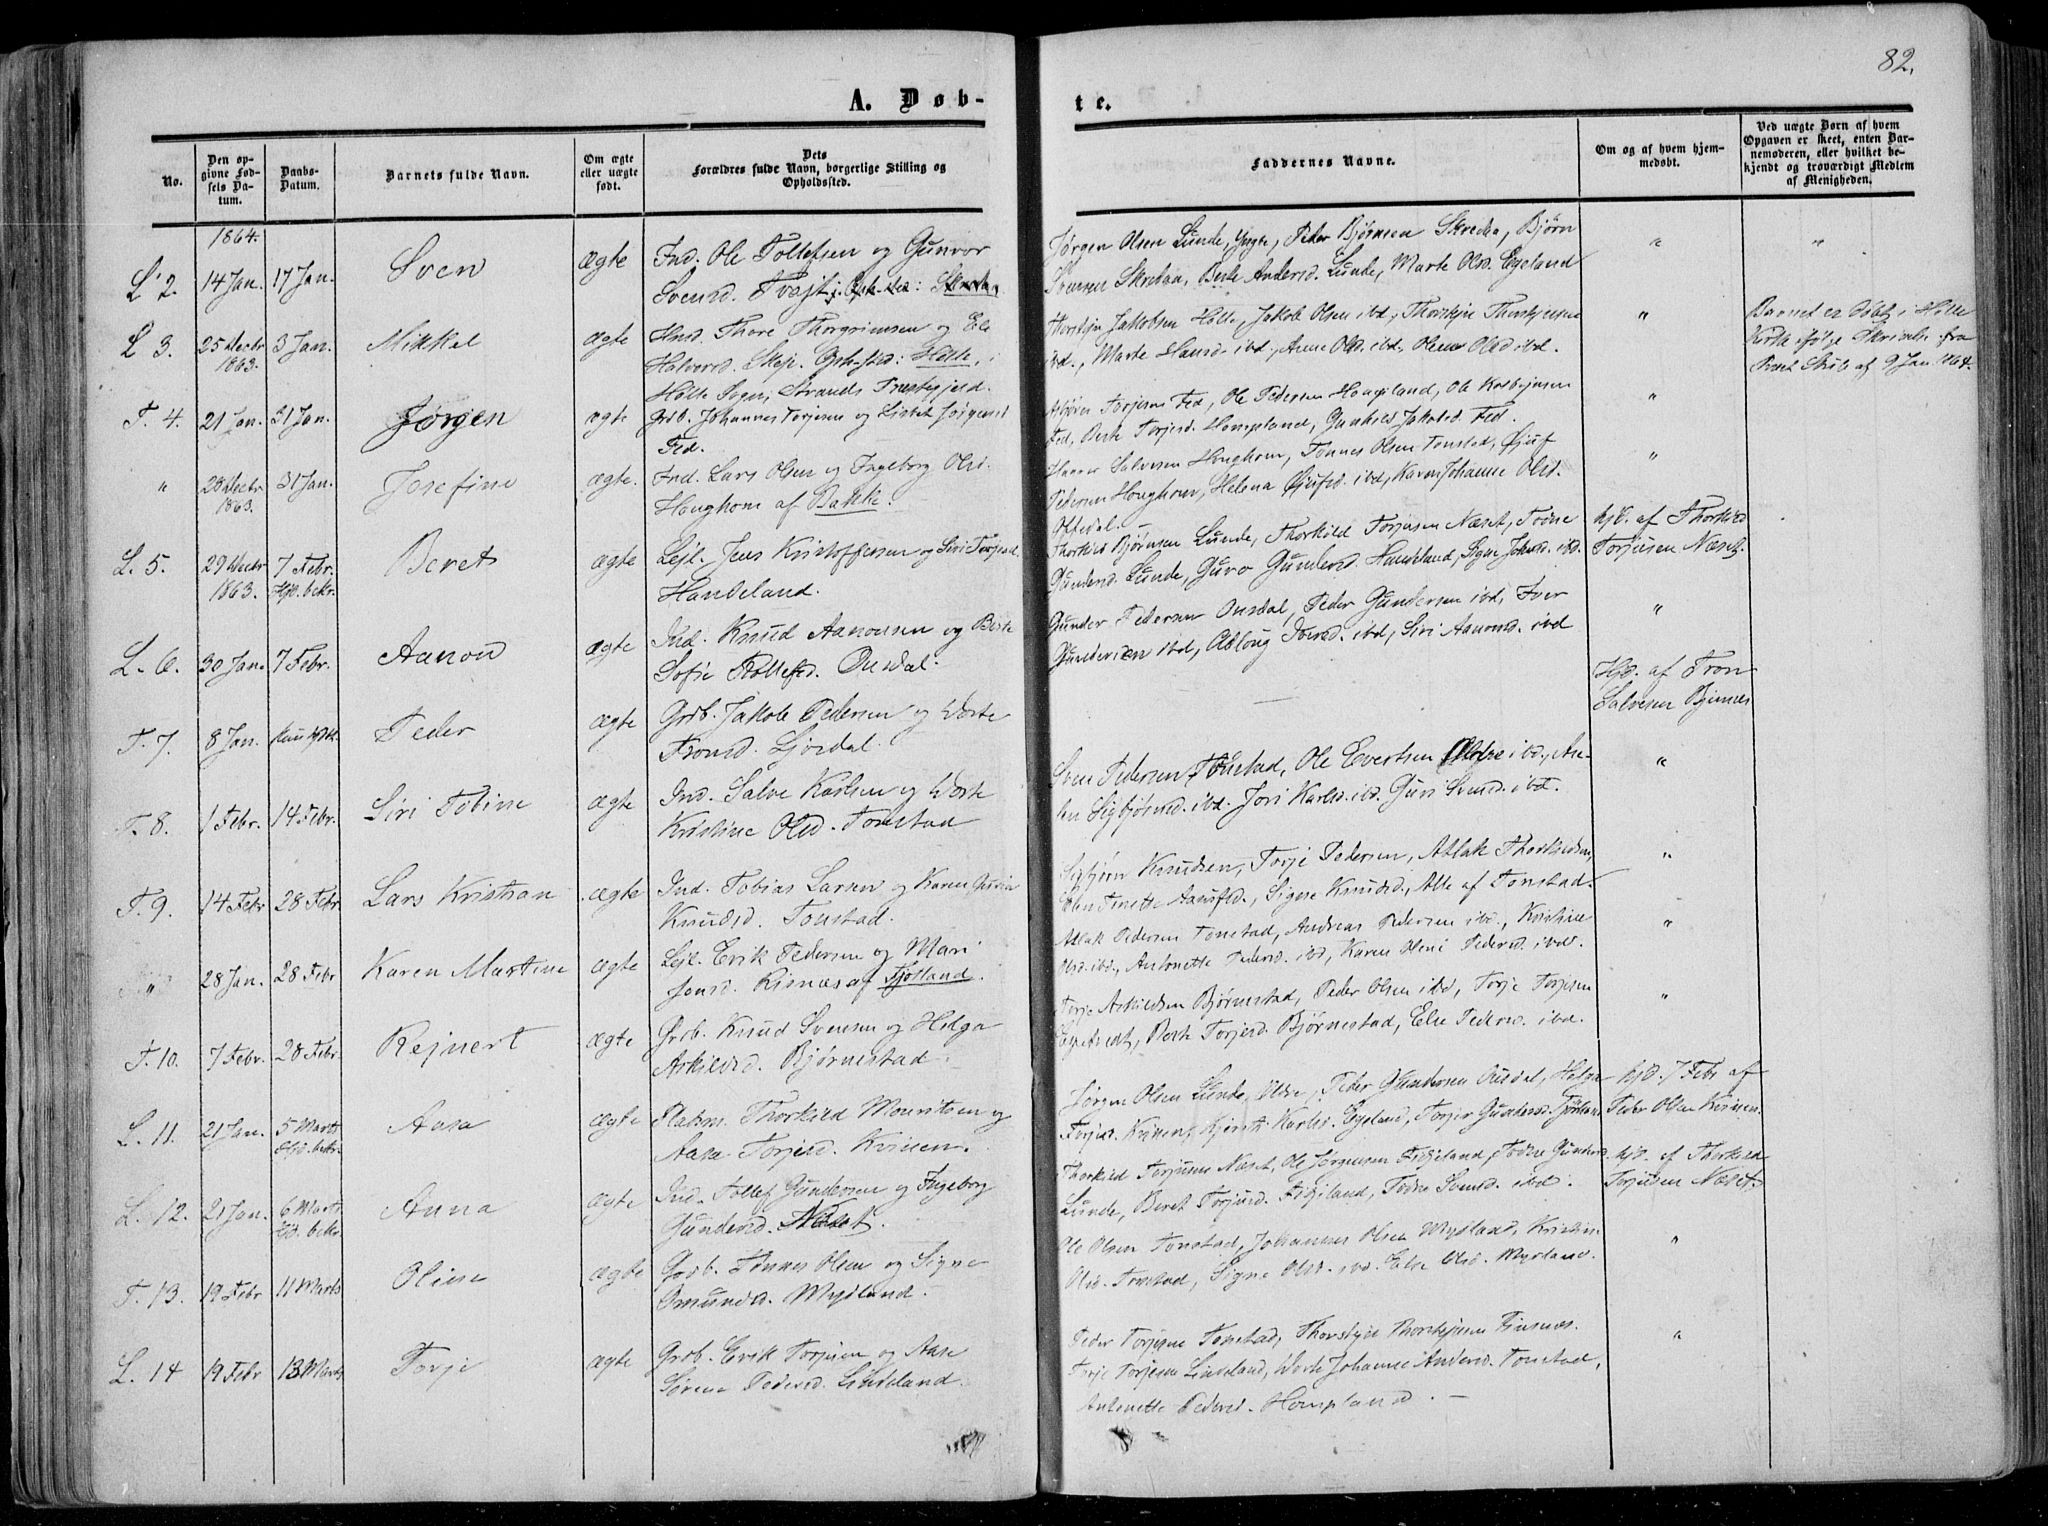 82.
A. Døb-
te.
No.
Den op-
givne Fød-
sels Da-
tum.
Daabs-
Datum.
Barnets fulde Navn.
Om ægte
eller uægte
født.
Dets
Forældres fulde Navn, borgerlige Stilling og
Opholdssted.
Faddernes Navne.
Om og af hvem hjem-
medøbt.
Ved uægte Børn af hvem
Opgaven er skeet, enten Bar-
nemoderen, eller hvilket be-
kjendt og troværdigt Medlem
af Menigheden.
1864.
L 2. 14 Jan. 17 Jan. Sven ægte Ind. Ole Tollefsen og Gunvor
Svensd. Tvejt
Jørgen Olsen Lunde, Yngre, Peder Bjørnsen Skredaa, Bjørn
Svensen Skredaa, Berte Andersd. Lunde, Marte Olsd. Egeland
" "
L 3. 25 Decbr 1863. 3 Jan. Mikkel ægte Ind. Thore Thorgrimsen og
Halvorsd. Opho.sted: Hölle,
Hölle Sogn, Strands Præstegjeld.
Thorstein Jakobsen Hölle, Jakob Olsen ibd.,
ibd., Marte Hansd. ibd., Anne Olsd. ibd., Olene Olsd. ibd.
"
Barnet er døbt i Hölle
Kirke ifølge Skrivelse fra
Præst af 9 Jan. 1864.
T. 4. 21 Jan. 31 Jan. Jørgen ægte Grdb. Johannes Torjesen og Lisbet Jørgensd.
Fed.
Torjesen Fed, Ole Pedersen Hompland, Ole
Fed, Berte Torjesd. Hompland, Gunhild Jakobsd. Fed.
"
" 28 Decbr 1863. 31 Jan. Josefine ægte. Ind. Lars Olsen og Ingeborg Olsd.
Houghom af Bakke.
Salvesen Houghom, Tønnes Olsen Tonstad,
Pedersen Houghom, Helena ibd., Karen Johanne Olsd.
Oftedal.
"
L. 5. 29 Decbr 1863. 7 Febr. Hjd. bekr. Beret ægte Lejl. Jens Kristoffersen og Siri Torjesd.
Handeland.
Thorkild Bjørnsen Lunde, Thorkild Torjusen Næset, Todne
Gundersd. Lunde, Guro Gundersd. Handeland, Johnsd. ibd.
hjd. af Thorkild
Torjusen Næset.
L. 6. 30 Jan. 7 Febr. Aanon ægte Ind. Knud Aanonsen og Berte
Sofie Tollefsd. Ousdal.
Gunder Pedersen Ousdal, Peder Gundersen ibd, Iver
Gundersen ibd, Iversd. ibd, Siri Aanonsd. ibd
"
T. 7. 8 Jan. Peder ægte Grdb. Jakob Pedersen og Dorte
Tronsd. Josdal.
Hjd. af Tron
Salvesen
T. 8. 1 Febr. 14 Febr. Siri Tobine ægte Ind. Salve Karlsen og Dorte
Kristine Olsd. Tonstad
Sven Pedersen Tonstad, Ole Evertsen ibd.,
Sigbjørnsd. ibd. Jori Karlsd. ibd. Guri Svensd. ibd.
"
T. 9. 14 Febr 28 Febr. Lars Kristian ægte Ind. Tobias Larsen og Karen Guria
Knudsd. Tonstad.
Sigbjørn Knudsen, Torje Pedersen, Atlak Thorkildsen,
Elen Tonette, Signe Knudsd., Alle af Tonstad.
"
" 28 Jan. 28 Febr Karen Martine ægte Lejl. Erik Pedersen og Mari
Jonsd. Risnæs af Fjotland.
Atlak Pedersen Tonstad, Andreas Pedersen ibd, Kristine
Olsd. ibd., Antonette Pedersd. ibd, Karen Oline Pedersd. ibd.
"
T. 10. 7 Febr. 28 Febr. Rejnert ægte Grdb. Knud Svensen og Helga
Askildsd. Bjørnestad
Torje Askildsen Bjørnestad, Peder Olsen ibd, Torje Torjesen
Berte Torjesd. Bjørnestad, Else Pedersd. ibd.
"
L. 11. 21 Jan. 5 Marts Hjd. bekr. Aasa ægte Pladsm. Thorkild Mouritsen og
Aasa Torjesd. Kvinen.
Jørgen Olsen Lunde, Eldre, Peder Gundersen Ousdal, Helga
Torjesd. Kvinen, Kjersti Karlsd. Egeland, Torjer Gundersd.
hjd. 7 Febr af
Peder Olsen Kvinen.
L. 12. 21 Jan. 6 Marts Hjd. bekr. Anna ægte Ind. Tollef Gundersen og Ingeborg
Gundersd. Næset.
Thorkild Torjusen Næset, Ole Jørgensen Fidjeland, Todne Gundersd.
Lunde, Beret Torjusd. Fidjeland, Todne Svensd. ibd.
hjd. af Thorkild
Torjusen Næset.
T. 13. 19 Febr 11 Marts Oline ægte Grdb. Tønnes Olsen og Signe
Omundsd. Mydland.
Ole Olsen Tonstad, Johannes Olsen Mydland, Kristine
Olsd. Tonstad, Signe Olsd. ibd. Else Olsd. Mydland.
"
L. 14 19 Febr 13 Marts Torje ægte Grdb. Erik Torjesen og Aase
Serene Pedersd. Lindeland.
Peder Torjesen Tonstad, Finsnæs.
Torje Torjesen Lindeland, Dorte Johanne Andersd. Tonstad,
Antonette Pedersd. Hompland. —
"